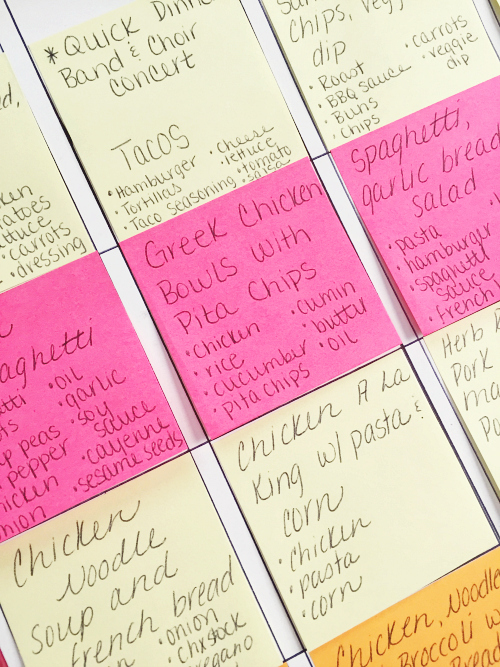 *Quick Dinner
Band & Choir
concert
Tacos
• Hamburger
• Tortillas
• Taco seasoning
• cheese
• lettuce
• tomato
• salsa
chips, vegg
dip
• Roast
• BBQ sauce
• Buns
• Chips
• carrots
• veggie
dip
• carrots
• dressing
Greek Chicken
Bowls with
Pita Chips
• chicken
• rice
• cucumber
• pita chips
• cumin
• butter
• oil
Spaghetti,
garlic bread
Salad
• pasta
• hamburger
• spaghetti
sauce
• French
aghetti
peas
pepper
• oil
• garlic
• soy
sauce
• cayenne
• sesame seeds
Chicken A La
King w/ pasta &
corn
• Chicken
• pasta
• corn
Herb
Pork
Chicken
Noodle
Soup and
french bread
• onion
• chxstock
Chicken, Noodle
Broccoli